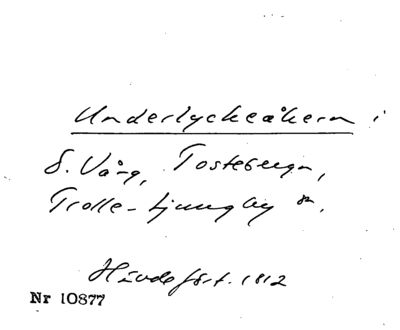 Underlyckeåkern i
S. Vång, Tosteberga,
Trolle-Ljungby sn.
Hävdeført. 1812
Nr 10877